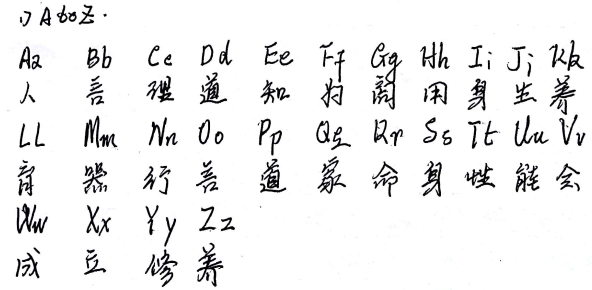 1) A to Z.
Aa Bb Cc Dd Ee Ff Gg Hh Ii Jj Kk
人 言 理 道 知 为 用 身 生 养
LL Mm Nn Oo Pp Qq Rr Ss Tt Uu Vv
育 器 行 善 道 家 命 身 性 能 会
Ww Xx Yy Zz
成 立 修 养